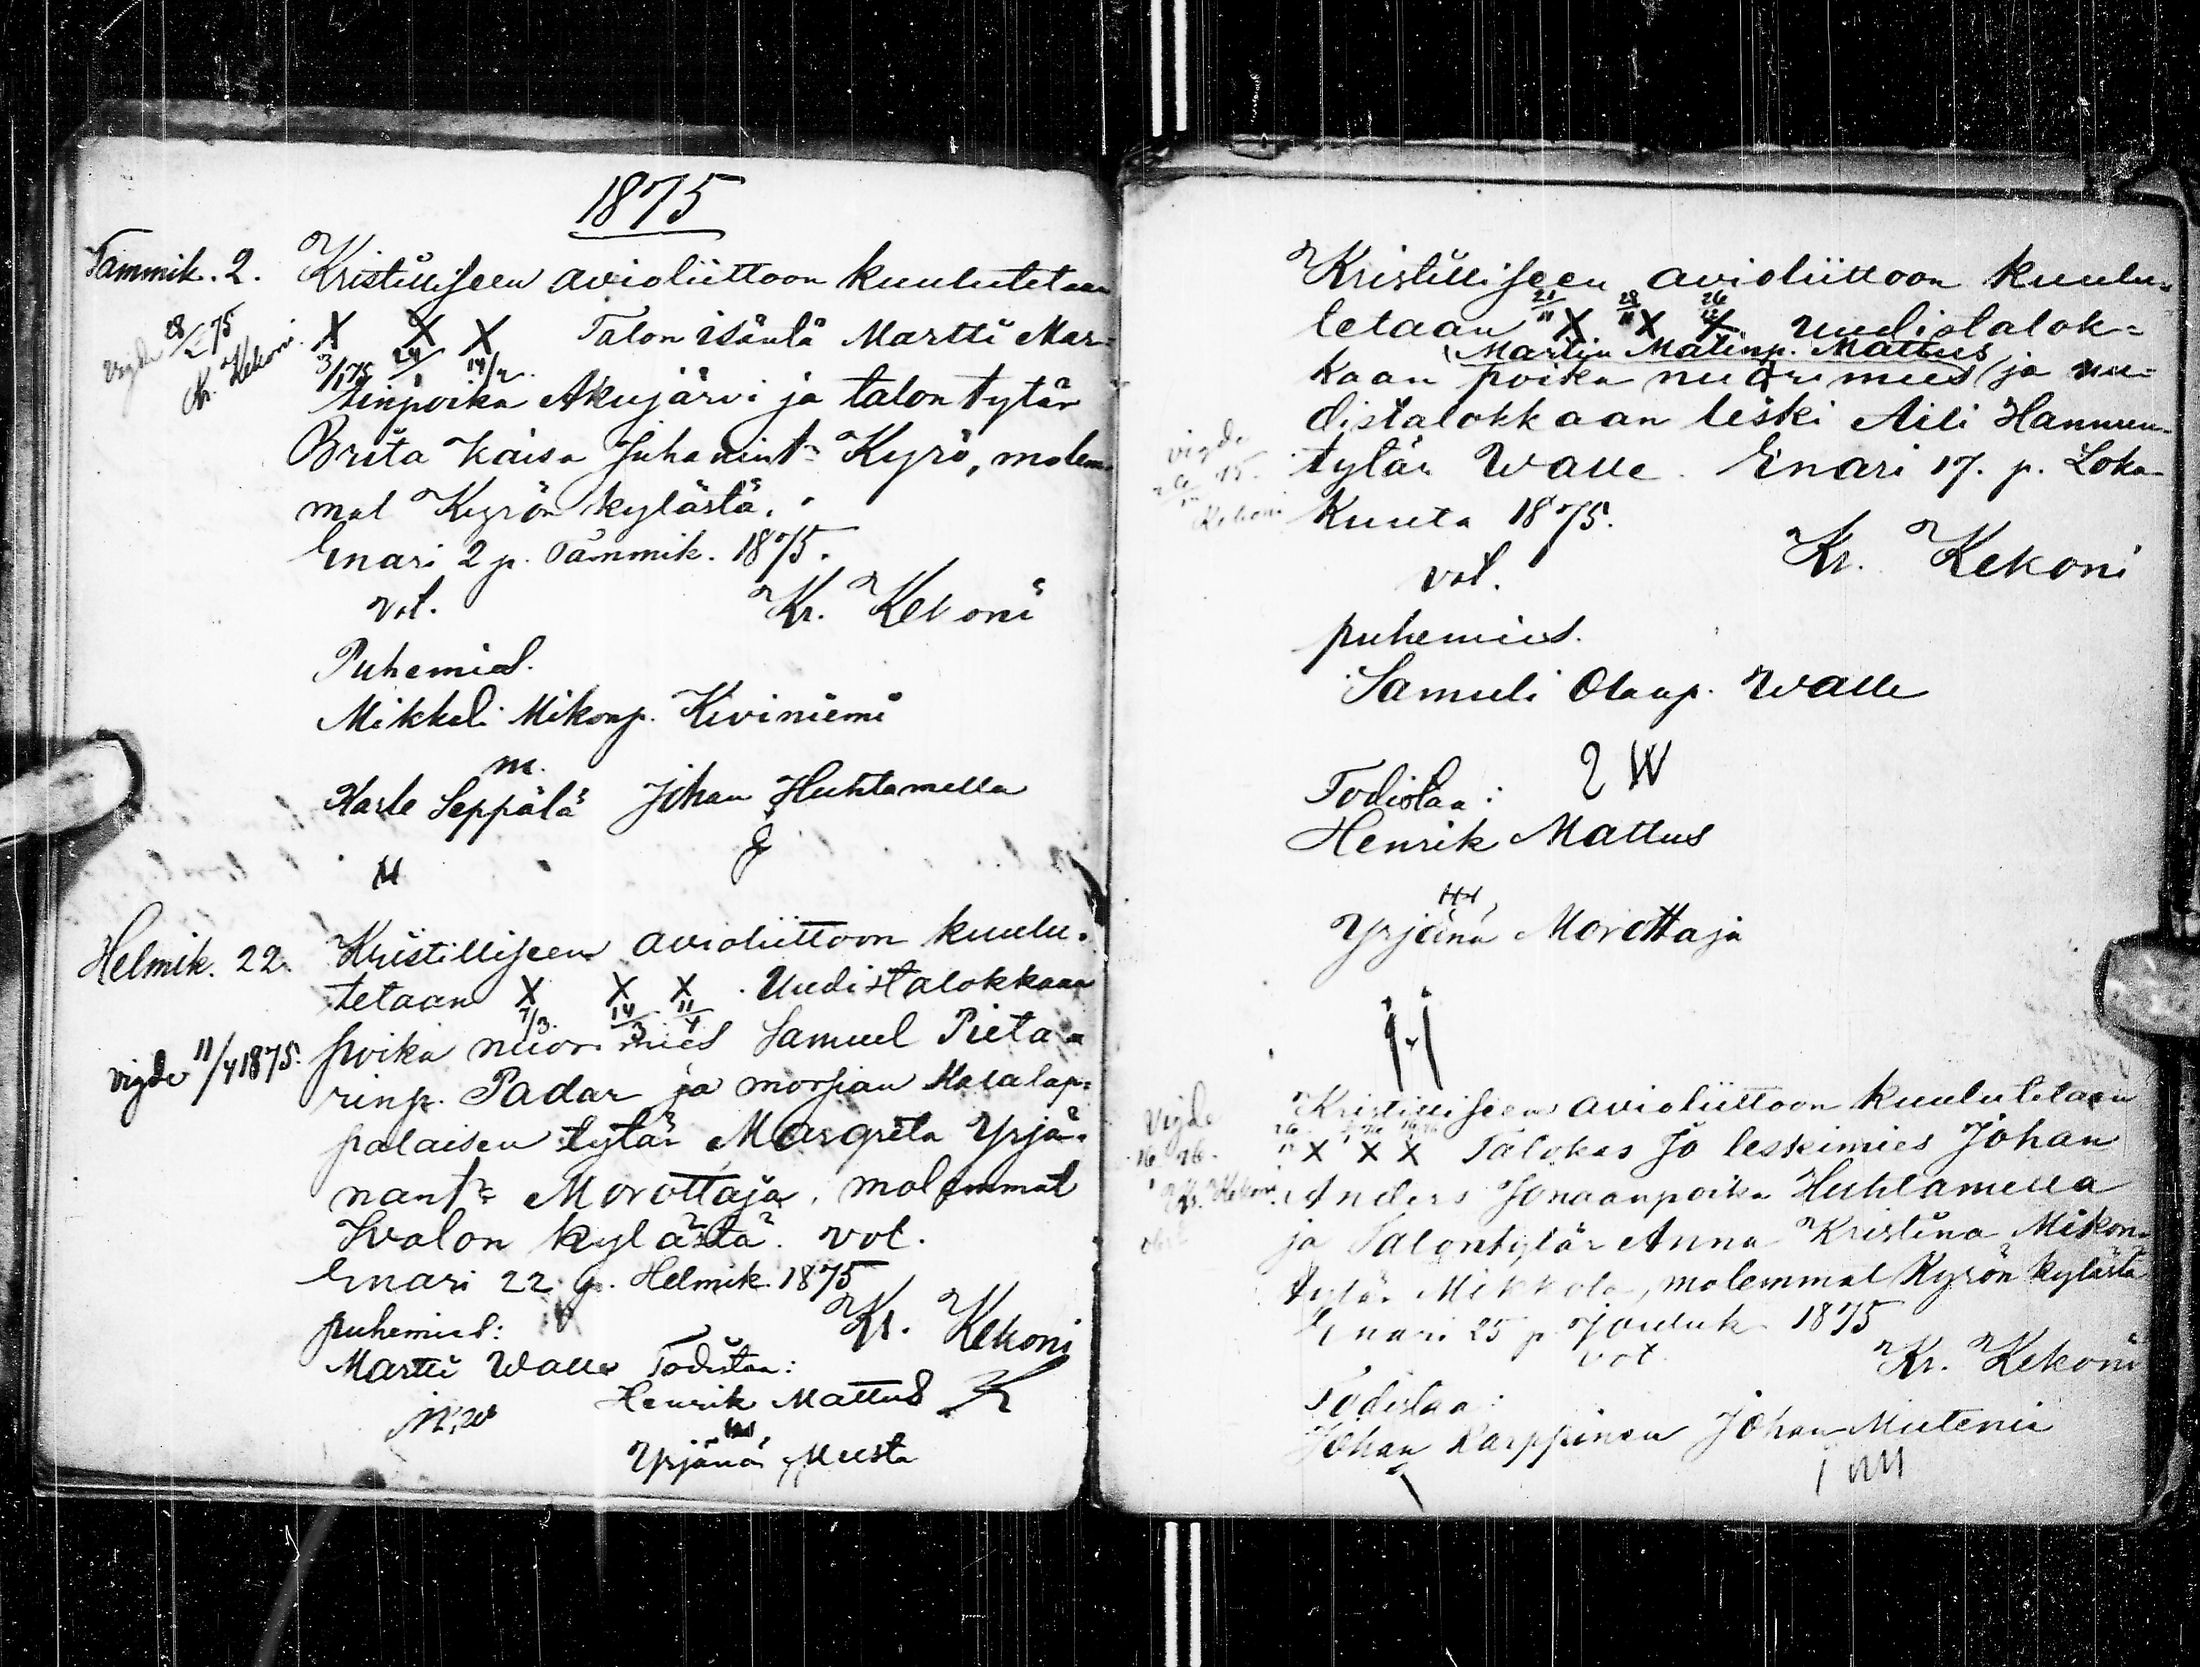 1875
Tammik. 2. Kristilliseen avioliittoon kuulutetaan
vigde 28/2 75 Kr. Kekoni
X X X Talon isäntä Martti Mar-
3/1 75 24/1 14/2
tinpoika Akujärvi ja talon tytär
Brita Kaisa Juhanint:r Kyrö, molem-
mat Kyrön kylästä.
Enari 2 p. Tammik. 1875.
vot. Kr. Kekoni
Puhemies.
Mikkeli Mikonp. Kiviniemi
m.
Karle Seppälä Johan Huhtamella
Helmik. 22. Kristilliseen avioliittoon kuulu-
tetaan X X X Uudistalokkaan
7/3. 14/3 11/4
vigde 11/4 1875. poika nuori mies Samuel Pieta-
rinp. Padar ja morsian Kalalap-
palaisen tytär Margreta Yrjä-
nant:r Morottaja, molemmat
Ivalon kylästä. vot.
Enari 22 p. Helmik. 1875
puhemies: Kr. Kekoni
Martti Walle Todistaa:
M. W Henrik Mattus
Yrjänä Musta
Kristilliseen avioliittoon kuulu-
21/11 28/11 26/12
tetaan X X X Uudistalok-
Martin Matinp. Mattus
kaan poika nuori mies ja uu-
distalokkaan leski Aili Hannun-
vigde
tytär Walle. Enari 17. p. Loka-
Kekoni
kuuta 1875.
vot. Kr. Kekoni
puhemies.
Samuli Olaup. Walle
W
Todistaa:
Henrik Mattus
Yrjänä Morottaja
Vigde
Kristilliseen avioliittoon kuulutetaan
X X X Talokas ja leskimies Johan
Kr. Kekoni
Anders Jonaanpoika Huhtamella
ja Talontytär Anna Kristina Mikon-
tytär Mikkola, molemmat Kyrön kylästä
Enari 25 p Jouluk 1875
vot. Kr. Kekoni
Todistaa:
Johan Karppinen Johan Mutenia